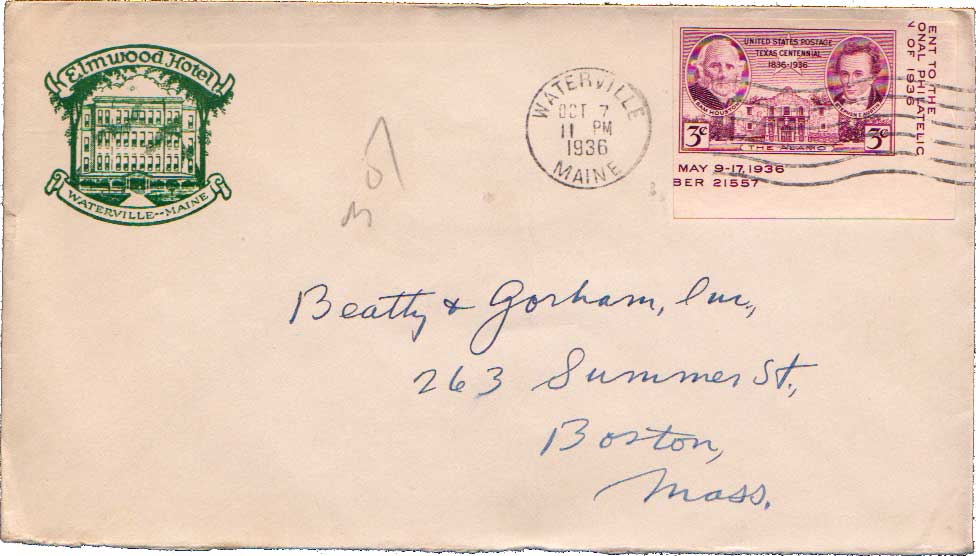 Elmwood Hotel
WATERVILLE--MAINE
WATERVILLE
OCT 7
11 PM
1936
MAINE
UNITED STATES POSTAGE
TEXAS CENTENNIAL
1836-1936
SAM HOUSTON
3c
THE ALAMO
3c
ENT TO THE
ONAL PHILATELIC
N OF 1936
MAY 9-17, 1936
BER 21557
Beatty & Gorham, Inc.,
263 Summer St.,
Boston,
Mass.